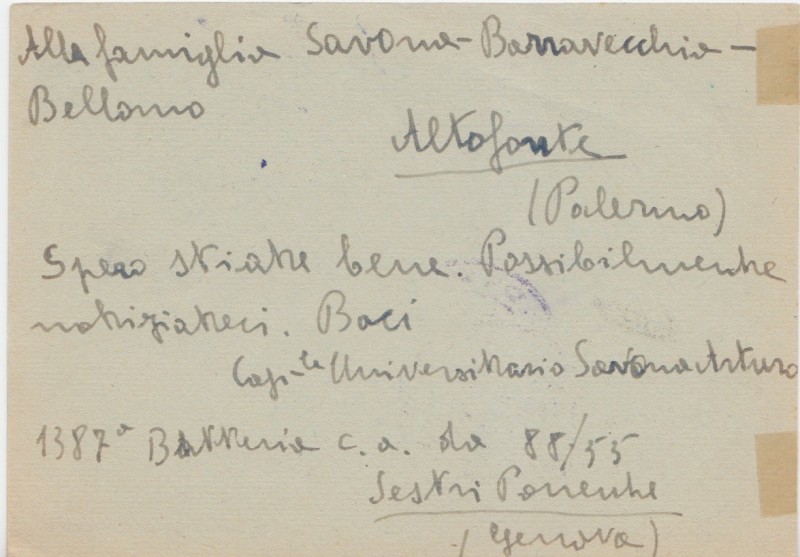 Alla famiglia Savona-Barravecchia-
Bellomo
Altofonte
(Palermo)
Spero stiate bene. Possibilmente
notiziateci. Baci
Cap-le Universitario Savona Arturo
1387ª Batteria c. a. da 88/55
Sestri Ponente
(Genova)